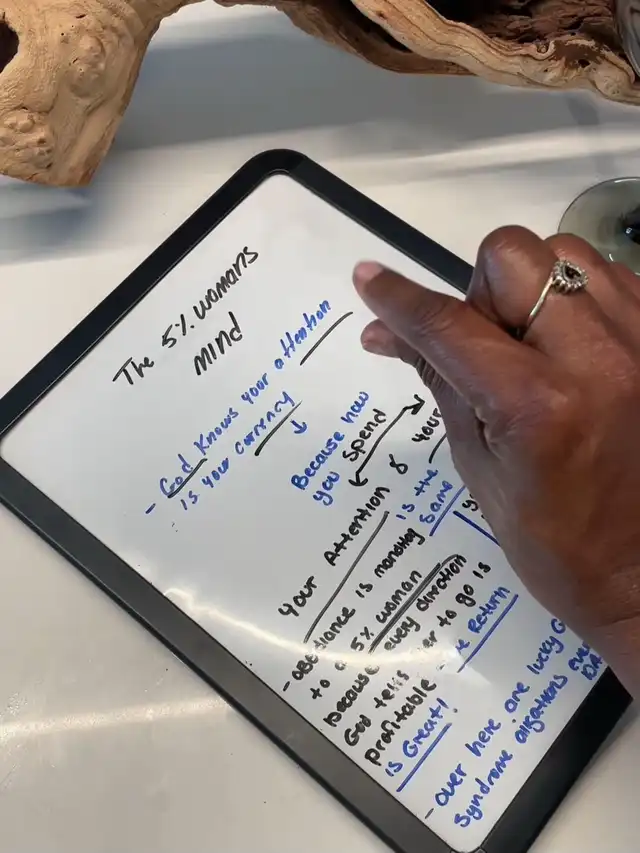 The 5% womans
MIND
- God Knows your attention
is your currency
Because how
you spend
your Attention & your
is the same
- obediance is monating
to a 5% woman
because every direction
God tells her to go is
profitable
Return
is Great!
- over here are lucky
syndrome